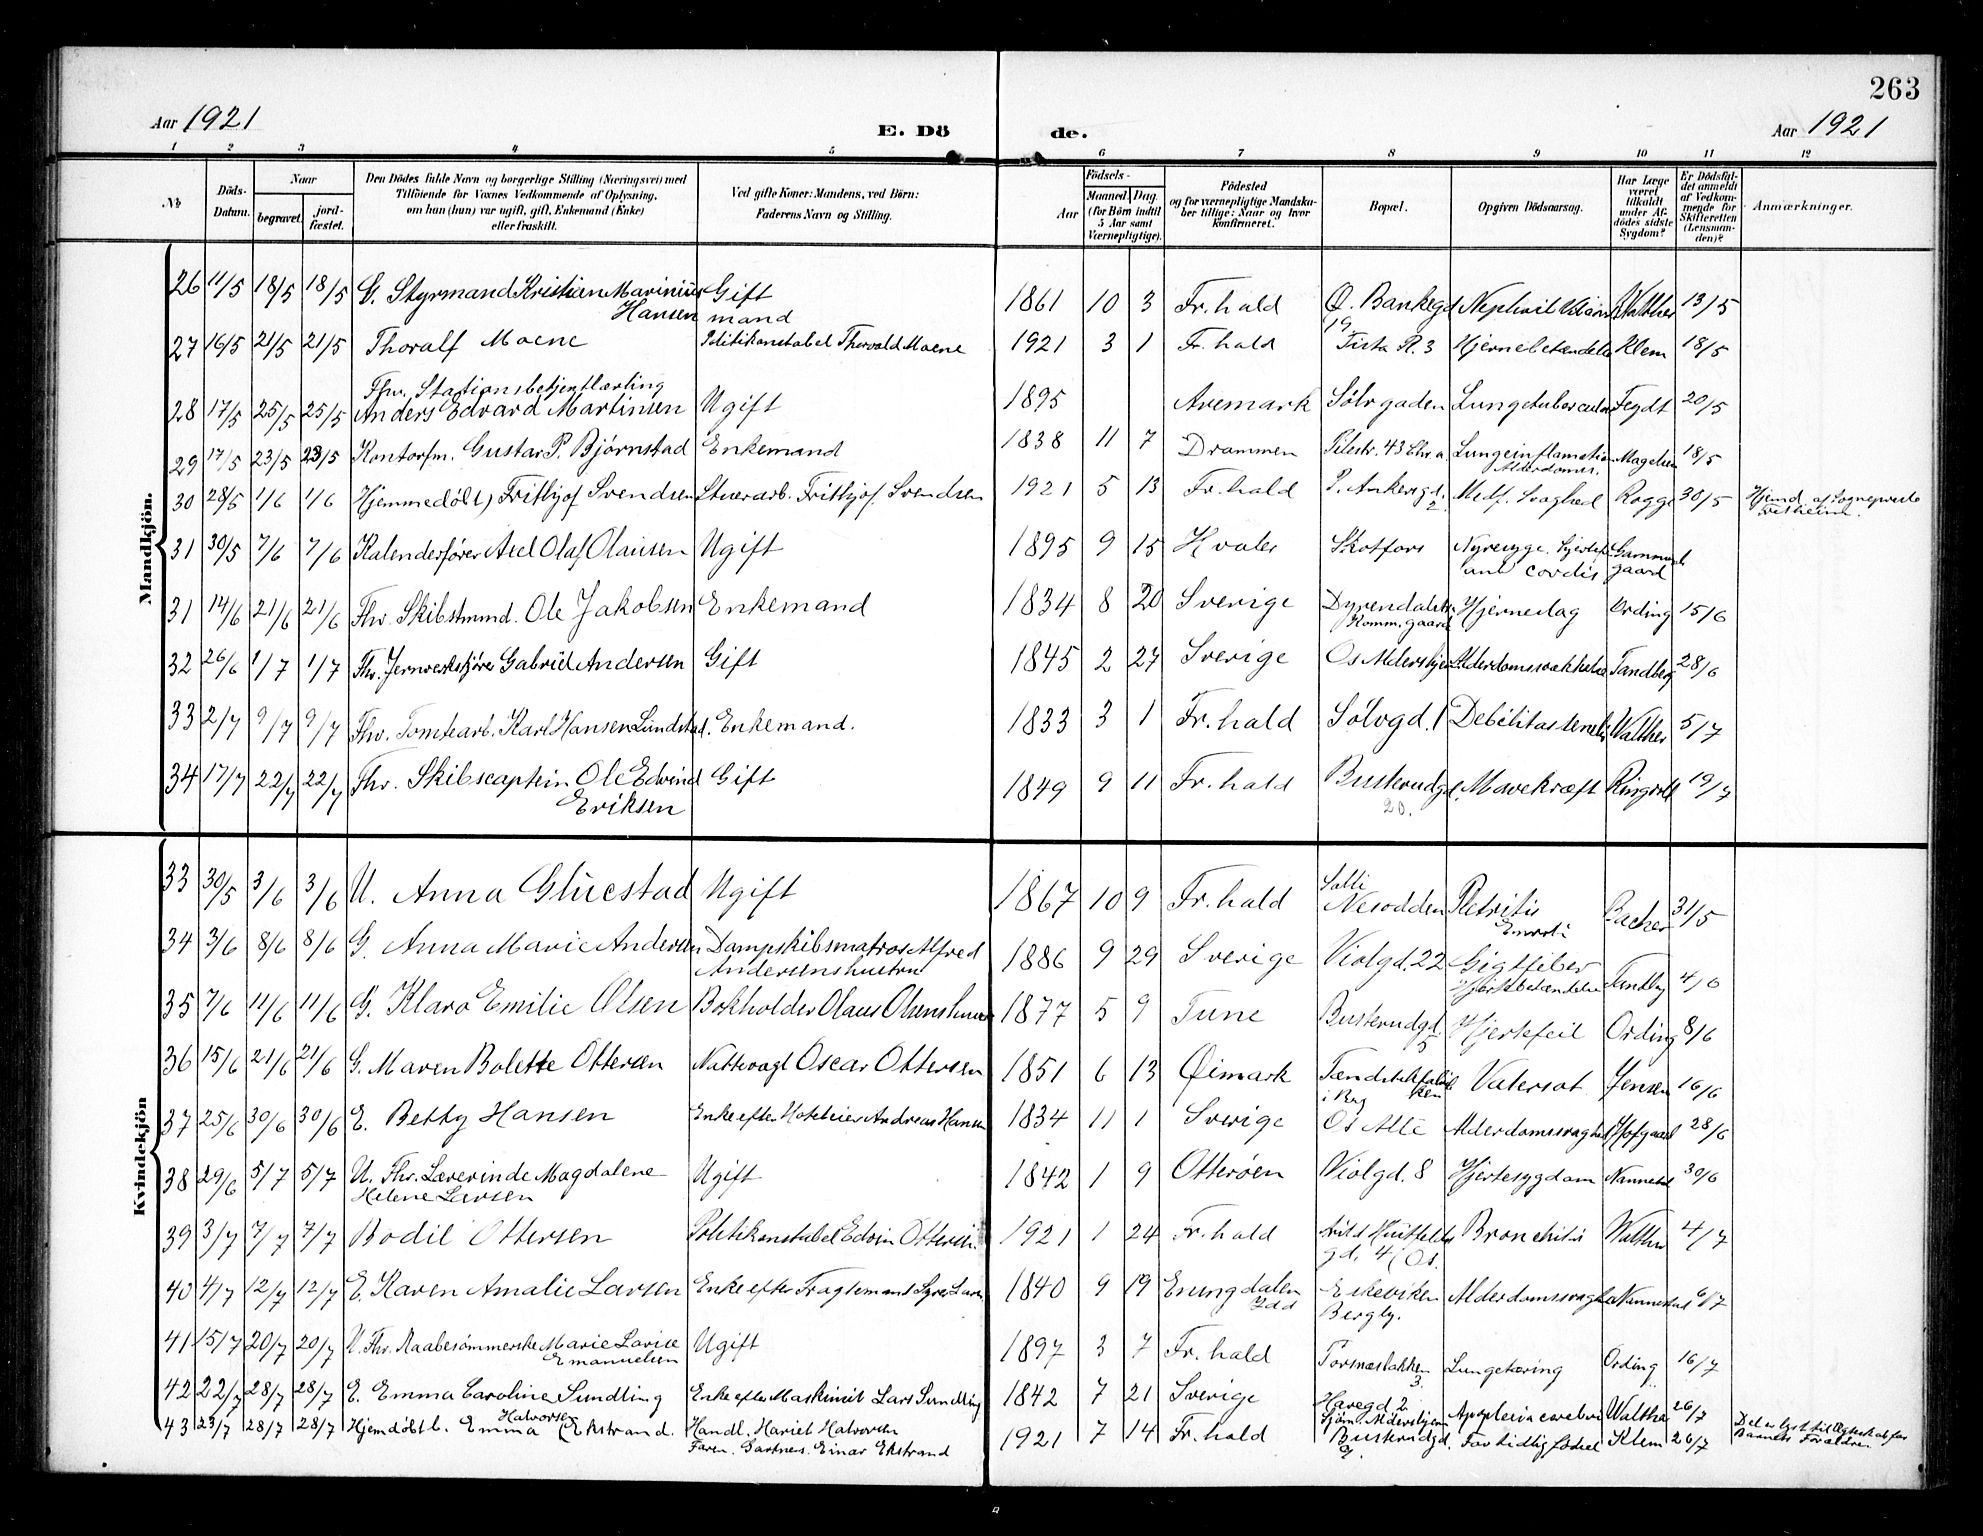 263
Aar 1921 E. Dö de. Aar 1921
1 2 3 4 5 6 7 8 9 10 11 12
No.
Döds-Datum.
Naar
begravet.
jord-fæstet.
Den Dödes fulde Navn og borgerlige Stilling (Næringsvei) med
Tilföiende for Voxnes Vedkommende af Oplysning,
om han (hun) var ugift, gift, Enkemand (Enke)
eller fraskilt.
Ved gifte Koner: Mandens, ved Börn:
Faderens Navn og Stilling.
Födsels-
Aar
Maaned. Dag.
(for Börn indtil
5 Aar samt
Værnepligtige).
Födested
og for værnepligtige Mandska-
ber tillige: Naar og hvor
konfirmeret.
Bopæl.
Opgiven Dödsaarsag.
Har Læge
været
tilkaldt
under Af-
dödes sidste
Sygdom?
Er Dödsfal-
det anmeldt
af Vedkom-
mende for
Skifteretten
(Lensman-
den)?
Anmærkninger.
Mandkjön.
26 11/5 18/5 18/5 G. Styrmand Kristian Marinius Hansen Gift mand 1861 10 3 Fr.hald Ø. Bankegd 19 Walther 13/5
27 16/5 21/5 21/5 Thoralf Moene Politikonstabel Thorvald Moene 1921 3 1 Fr.hald Tista R. 3 Hjernebetændelse Klem 18/5
28 17/5 25/5 25/5 Fhv. Stationsbetjentlærling Anders Edvard Martinsen Ugift 1895 Aremark Sølvgaden Lungetuberculose Feydt 20/5
29 17/5 23/5 23/5 Kontorfm. Gustav P. Bjørnstad Enkemand 1838 11 7 Drammen Pilestr. 43 Chr.a. Lungeinflamation Alderdoms. Magelsen 18/5
30 28/5 1/6 1/6 Hjemmedøbt) Frithjof Svendsen Stuerarb. Frithjof Svendsen 1921 5 13 Fr.hald P. Ankersgd. 2 Medf. Svaghed Rogge 30/5 Hjemd. af Sogneprest
31 30/5 7/6 7/6 Kalenderfører Axel Olaf Olausen Ugift 1895 9 15 Hvaler Skotfors Nyresyge. cordis Gammelgaard
31 14/6 21/6 21/6 Fhv. Skibstmmd. Ole Jakobsen Enkemand 1834 8 20 Sverige Dyrendalstr. Komm. gaard Hjerneslag Ording 15/6
32 26/6 1/7 1/7 Fhv. Jernverksfører Gabriel Andersen Gift 1845 2 27 Sverige Os Aldershjem Alderdomssvækkelse Tandberg 28/6
33 2/7 9/7 9/7 Fhv. Tomtearb. Karl Hansen Lundstad. Enkemand. 1833 3 1 Fr.hald Sølvgd. 1 Debilitas senilis Walther 5/7
34 17/7 22/7 22/7 Fhv. Skibscaptein Ole Edvind Eriksen Gift 1849 9 11 Fr.hald Buskerudgd. 20. Mavekræft Ringvold 19/7
Kvindekjön
33 30/5 3/6 3/6 U. Anna Gluestad Ugift 1867 10 9 Fr.hald Nesodden Bacher 31/5
34 3/6 8/6 8/6 G. Anna Marie Andersen Dampskibsmatros Alfred Andersens hustru 1886 9 29 Sverige Violgd. 22 Gigtfeber Hjertebetændelse 4/6
35 7/6 11/6 11/6 G. Klara Emilie Olsen Bokholder Olaus Olsens hustru 1877 5 9 Tune Buskerudgd. 5 Hjertefeil Ording 8/6
36 15/6 21/6 21/6 G. Maren Bolette Ottersen Nattevagt Oscar Ottersen 1851 6 13 Øimark Tændstikfabriken i Berg Vatersot Jensen 16/6
37 25/6 30/6 30/6 E. Betty Hansen Enke efter Andreas Hansen 1834 11 1 Sverige Os Alle Alderdomssvaghed Hofgaard 28/6
38 29/6 5/7 5/7 U. Fhv. Lærerinde Magdalene Helene Larsen Ugift 1842 1 9 Otterøen Violgd. 8 Hjertesygdom Nannestad 30/6
39 3/7 7/7 7/7 Bodil Ottersen Politikonstabel Edvin Ottersen 1921 1 24 Fr.hald Arild Huitfeldts gd. 4 i Os. Bronchitis Walther 4/7
40 4/7 12/7 12/7 E. Karen Amalie Larsen Enke efter Fragtemand Syver Larsen 1840 9 19 Enningdalen Idd Eskeviken Bergby. Alderdomssvaghed Nannestad 6/7
41 15/7 20/7 20/7 U. Fhv. Kaabesömmerske Marie Lovise Emanuelsen Ugift 1897 3 7 Fr.hald Torsnæsbakken 3. Lungetæring Ording 16/7
42 22/7 28/7 28/7 E. Emma Caroline Sundling Enke efter Maskinist Lars Sundling 1842 7 21 Sverige Havegd. 2 Sjöm. Aldershjem Apoplexia cerebri Walther 26/7
43 23/7 28/7 28/7 Hjemdöbt b. Emma Halvorsen (Ekstrand. Handl. Hariet Halvorsen Faren. Gartner. Einar Ekstrand 1921 7 14 Fr.hald Buskerudgd. 9 For tidlig födsel Klem 26/7 Det er lyst til Ægteskab for Barnets Forældre.